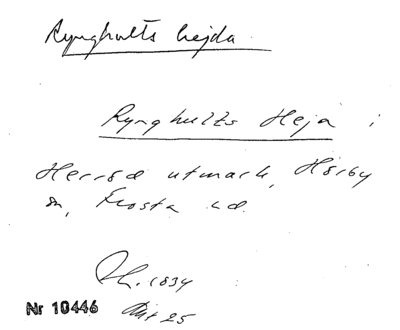 Rynghults hejda
Rynghults Heja i
Herröd utmark, Hörby
sn, Frosta hd.
Lh. 1834
Akt 25
Nr 10446